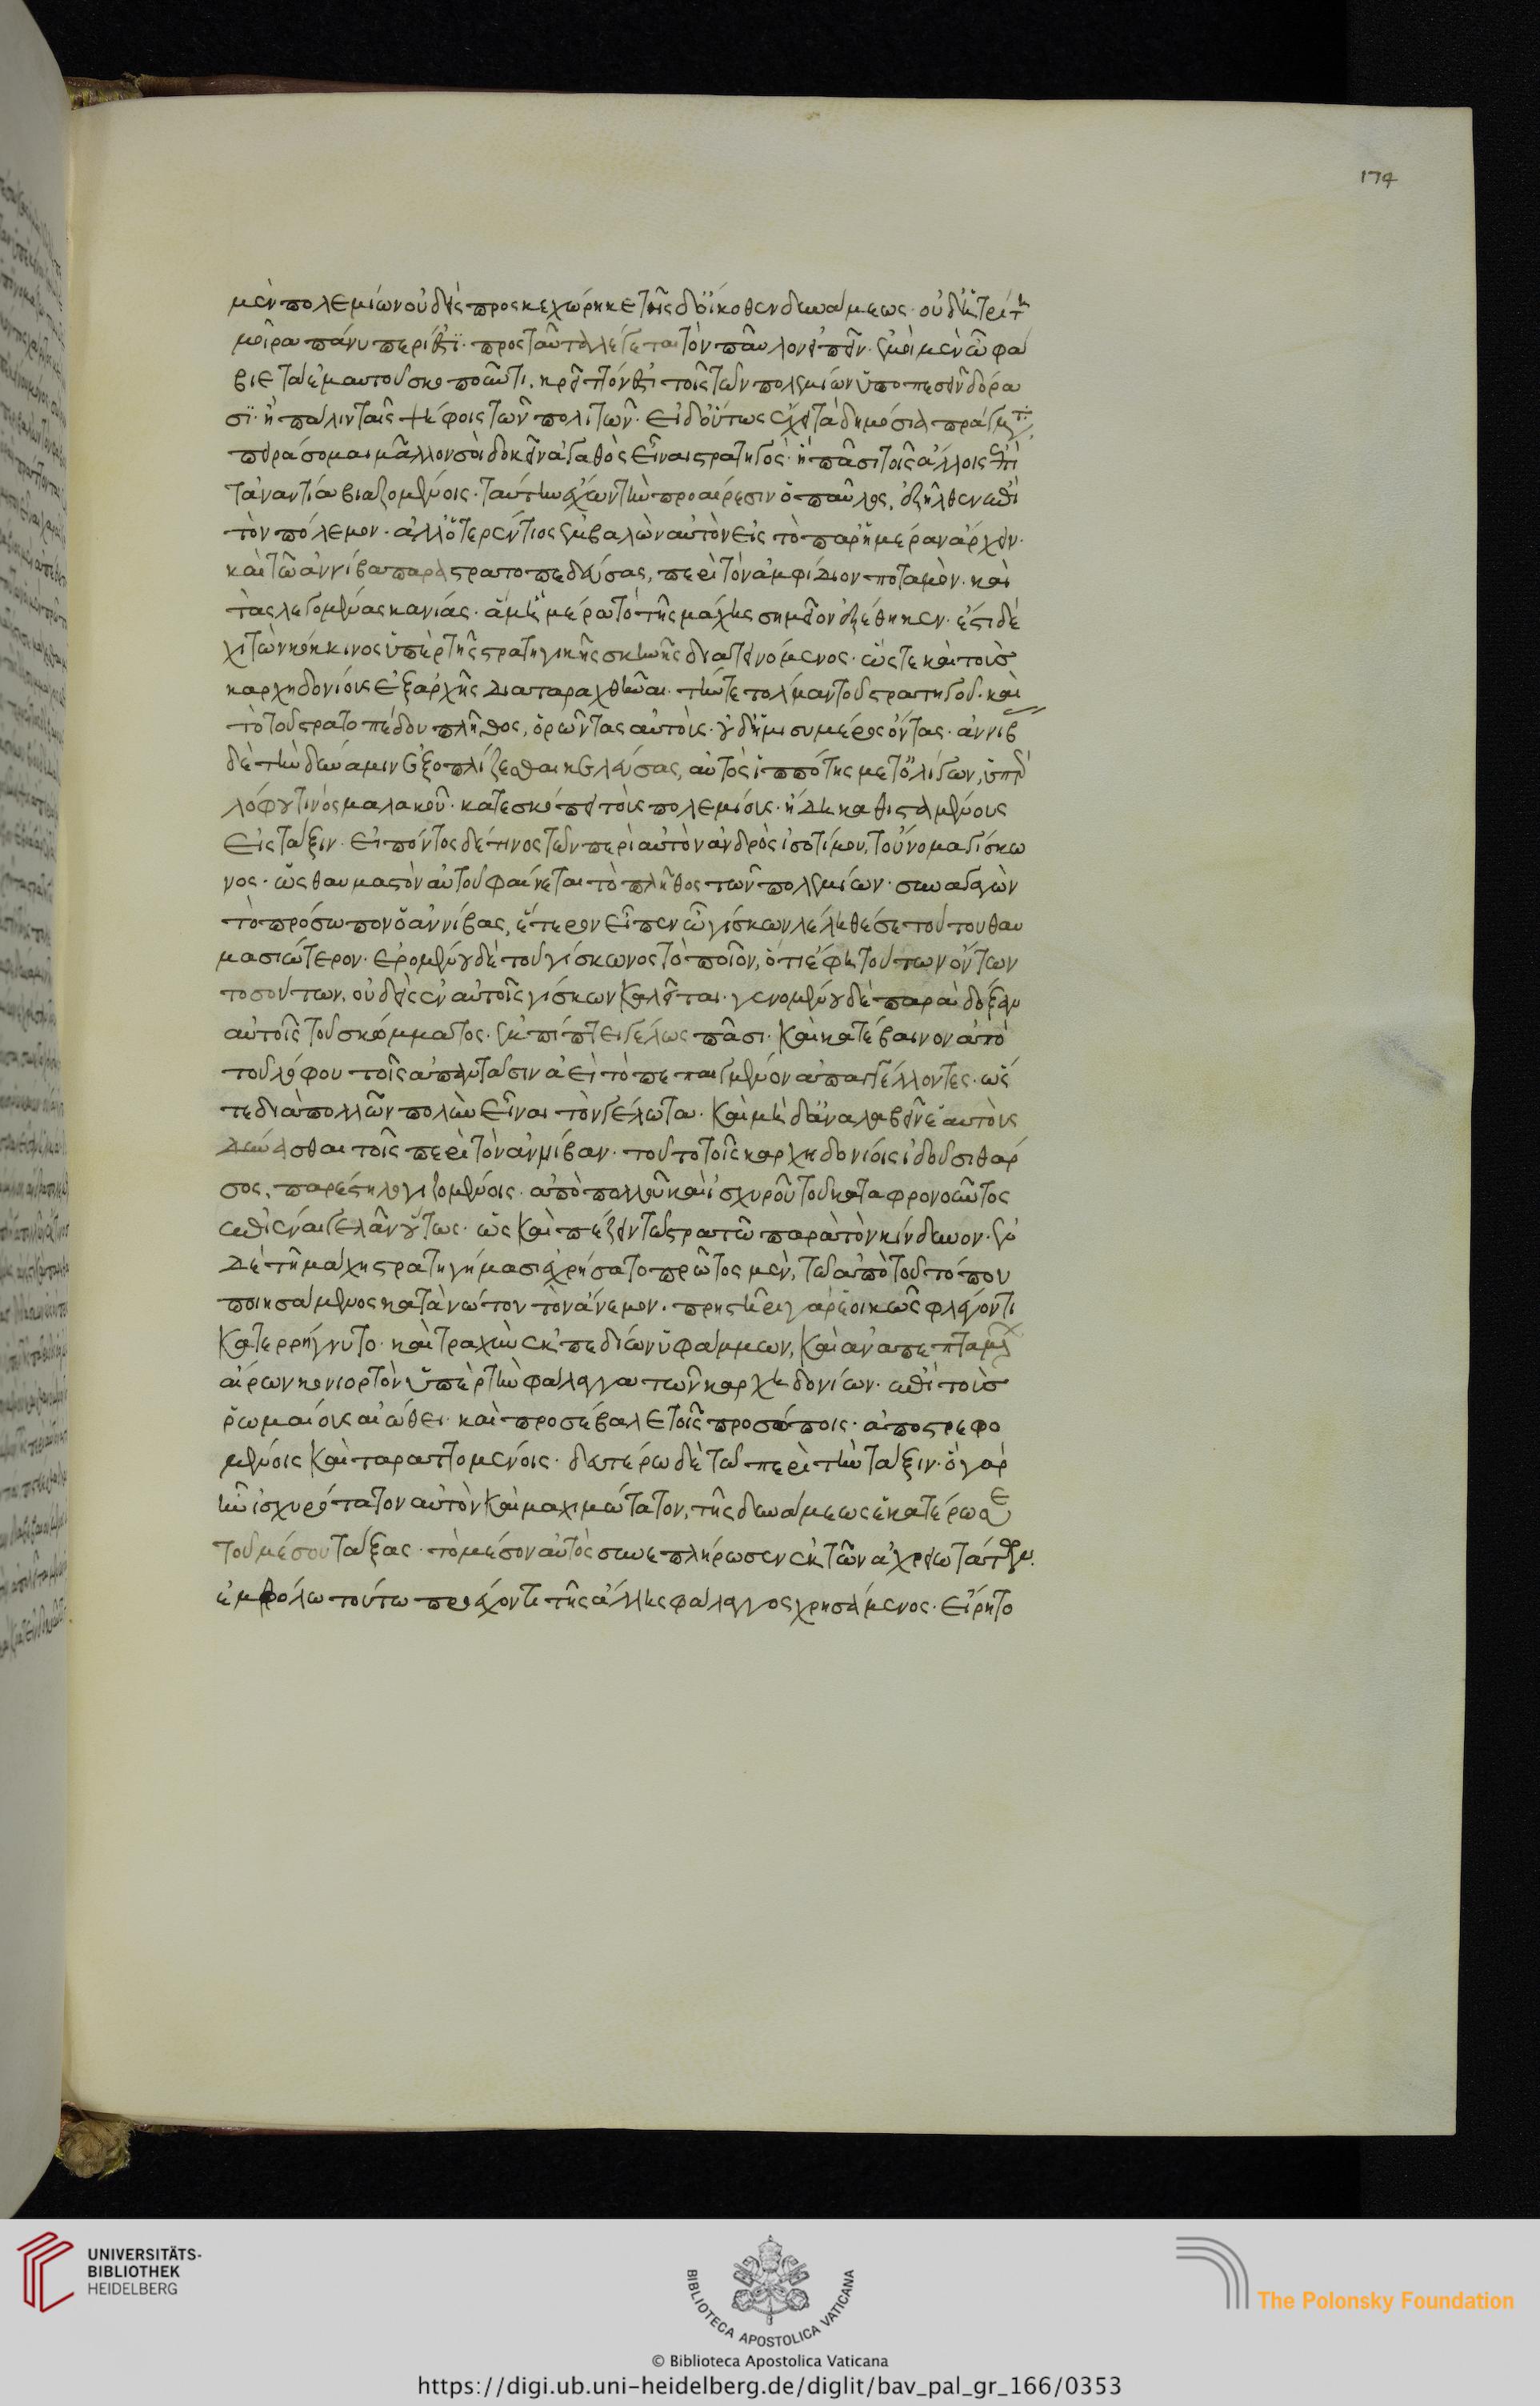 174
μὲν πολεμίων οὐδεὶς προσκεχώρηκε τῆς δ' οἴκοθεν δυνάμεως οὐδ' ἡ τρίτη
μοῖρα πάνυ περίεστι· πρὸς ταῦτα λέγεται τὸν παῦλον εἰπεῖν· ἐμοὶ μὲν ὦ φά
βιε τὰ ἐμαυτοῦ σκοποῦντι, κρεῖττόν ἐστι τοῖς τῶν πολεμίων ὑποπεσεῖν δόρα
σι· ἢ πάλιν ταῖς ψήφοις τῶν πολιτῶν· εἰ δ' οὕτως ἔχει τὰ δημόσια πράγματα,
πειράσομαι μᾶλλον σοὶ δοκεῖν ἀγαθὸς εἶναι στρατηγός· ἢ πᾶσι τοῖς ἄλλοις ἐπὶ
τἀναντία βιαζομένοις· ταύτην ἔχων τὴν προαίρεσιν ὁ παῦλος, ἐξῆλθεν ἐπὶ
τὸν πόλεμον· ἀλλ' ὁ τερέντιος ἐμβαλὼν αὐτὸν εἰς τὸ παρ' ἡμέραν ἄρχειν·
καὶ τῶ ἀννίβα παραστρατοπεδεύσας, περὶ τὸν ἀμφίδιον ποταμὸν· καὶ
τὰς λεγομένας κανίας· ἅμ' ἡμέρα τὸ τῆς μάχης σημεῖον ἐξέθηκεν· ἔστι δὲ
χιτὼν κόκκινος ὑπὲρ τῆς στρατηγικῆς σκηνῆς διατεινόμενος· ὥστε καὶ τοὺς
καρχηδονίους ἐξ ἀρχῆς διαταραχθῆναι· τήν τε τόλμαν τοῦ στρατηγοῦ· καὶ
τὸ τοῦ στρατοπέδου πλῆθος, ὁρῶντας αὐτοὺς· οὐδ' ἥμισυ μέρος ὄντας· ἀννίβ
δὲ τὴν δύναμιν ἐξοπλίζεσθαι κελεύσας, αὐτὸς ἱππότης μετ' ὀλίγων, ὑπὲρ
λόφου τινὸς μαλακοῦ· κατεσκόπει τοὺς πολεμίους· ἤδη καθισταμένους
εἰς τάξιν· εἰπόντος δέ τινος τῶν περὶ αὐτὸν ἀνδρὸς ἰσοτίμου, τοὔνομα γίσκω
νος· ὡς θαυμαστὸν αὐτοῦ φαίνεται τὸ πλῆθος τῶν πολεμίων· συναγαγὼν
τὸ πρόσωπον ὁ ἀννίβας, ἕτερον εἶπεν ὦ γίσκων λέληθέ σε τούτου θαυ
μασιώτερον· ἐρομένου δὲ τοῦ γίσκωνος τὸ ποῖον, ὅτι ἔφη τούτων ὄντων
τοσούτων, οὐδεὶς ἐν αὐτοῖς γίσκων καλεῖται· γενομένου δὲ παρὰ δόξαν
αὐτοῖς τοῦ σκώμματος· ἐμπίπτει γέλως πᾶσι· καὶ κατέβαινον ἀπὸ
τοῦ λόφου τοῖς ἀπαντῶσιν ἀεὶ τὸ πεπαιγμένον ἀπαγγέλλοντες· ὥς
τε διὰ πολλῶν πολὺν εἶναι τὸν γέλωτα· καὶ μὴ δ' ἀναλαβεῖν ἑαυτοὺς
δύνασθαι τοῖς περὶ τὸν ἀννίβαν· τοῦτο τοῖς καρχηδονίοις ἰδοῦσι θάρ
σος, παρέστη λογιζομένοις· ἀπὸ πολλοῦ καὶ ἰσχυροῦ τοῦ καταφρονοῦντος
ἐπιέναι γελᾶν οὕτως· ὡς καὶ παίζειν τῶ στρατηγῶ παρὰ τὸν κίνδυνον· ἐν
δὲ τῆ μάχη στρατηγήμασιν ἐχρήσατο πρῶτος μὲν, τῶ ἀπὸ τοῦ τόπου
ποιησάμενος κατὰ νώτου τὸν ἄνεμον· πρηστῆρι γὰρ ἐοικὼς φλέγοντι
κατερρήγνυτο· καὶ τραχὺν ἐκ πεδίων ὑφάμμων, καὶ ἀναπεπταμένων
αἴρων κονιορτὸν ὑπὲρ τὴν φάλαγγα τῶν καρχηδονίων· ἐπὶ τοὺς
ῥωμαίους αἰώθει· καὶ προσέβαλε τοῖς προσώποις· ἀποστρεφο
μένοις καὶ ταραττομένοις· δευτέρω δὲ τῶ περὶ τὴν τάξιν· ὃ γὰρ
ἦν ἰσχυρότατον αὐτὸν καὶ μαχιμώτατον, τῆς δυνάμεως ἑκατέρωθε
τοῦ μέσου τάξας· τὸ μέσον αὐτὸς συνεπλήρωσεν ἐκ τῶν ἀχρειοτάτων·
ἐμβόλω τούτω προέχοντι τῆς ἄλλης φάλαγγος χρησάμενος· εἴρητο
UNIVERSITÄTS-
BIBLIOTHEK
HEIDELBERG
BIBLIOTECA APOSTOLICA VATICANA
© Biblioteca Apostolica Vaticana
The Polonsky Foundation
https://digi.ub.uni-heidelberg.de/diglit/bav_pal_gr_166/0353